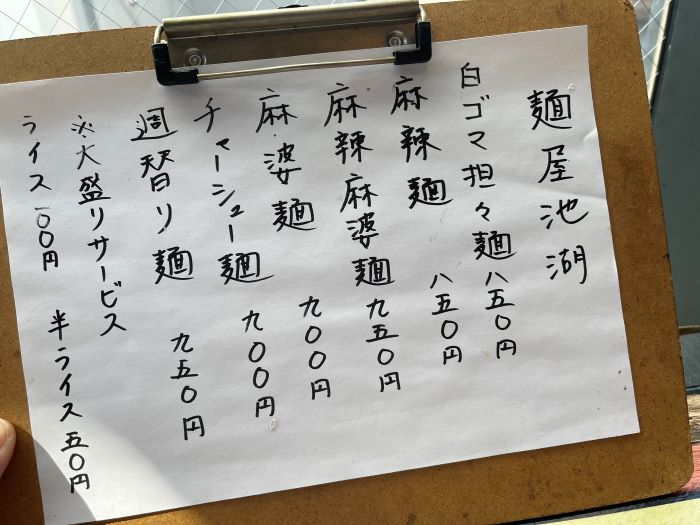 麺屋池湖
白ゴマ担々麺 八五〇円
麻辣麺 八五〇円
麻辣麻婆麺 九五〇円
麻婆麺 九〇〇円
チャーシュー麺 九〇〇円
週替り麺 九五〇円
※大盛りサービス
ライス 一〇〇円 半ライス 五〇円